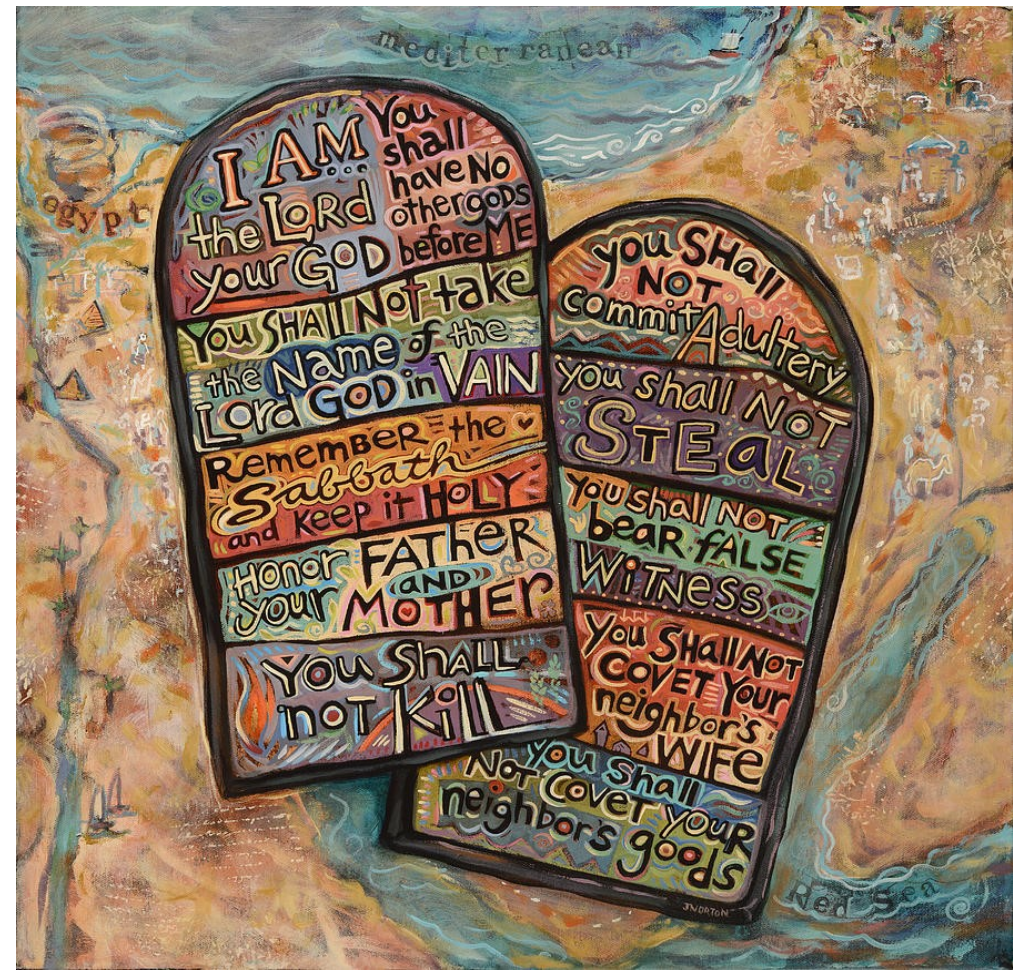 mediterranean
egypt
I AM...
the LORd
your GOD
You
shall
have NO
other gods
before ME
You SHAll NoT take
the Name of the
Lord GOD in VAIN
RemembeR the
Sabbath
and keep it HOLLY
Honor
your
FATHeR
AND
MOTHEr
You ShALL
noT Kill
you SHall
NOT
commit Adultery
you shall NOT
STEaL
you shall NOT
beaR fALSE
WiTNESS
You SHall NOT
COVET Your
neighbor's
WIFE
you Shall
NoT Covet your
neighbor's goods
JNORTON
Red Sea